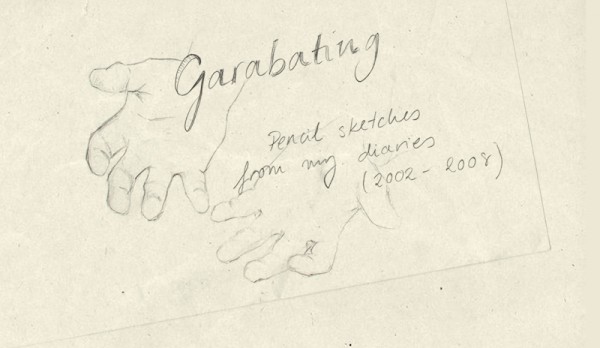 Garabating
Pencil sketches
from my diaries
(2002 - 2008)